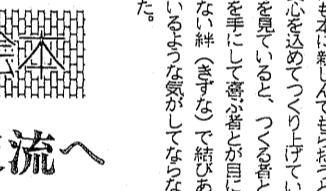 も本に親しんでもらおう
心を込めてつくり上げてい
を見ていると、つくる者
を手にして喜ぶ者とが目に
ない絆（きずな）で結びあ
いるような気がしてならな
た。
絵本
流へ